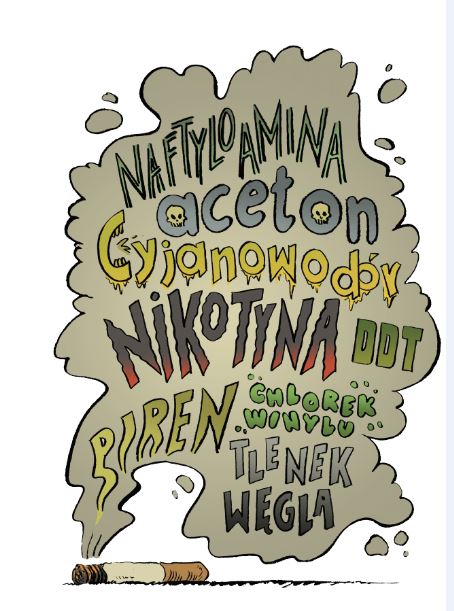 NAFTYLOAMINA
aceton
Cyjanowodór
NIKOTYNA
DDT
PIREN
CHLOREK
WINYLU
TLENEK
WĘGLA